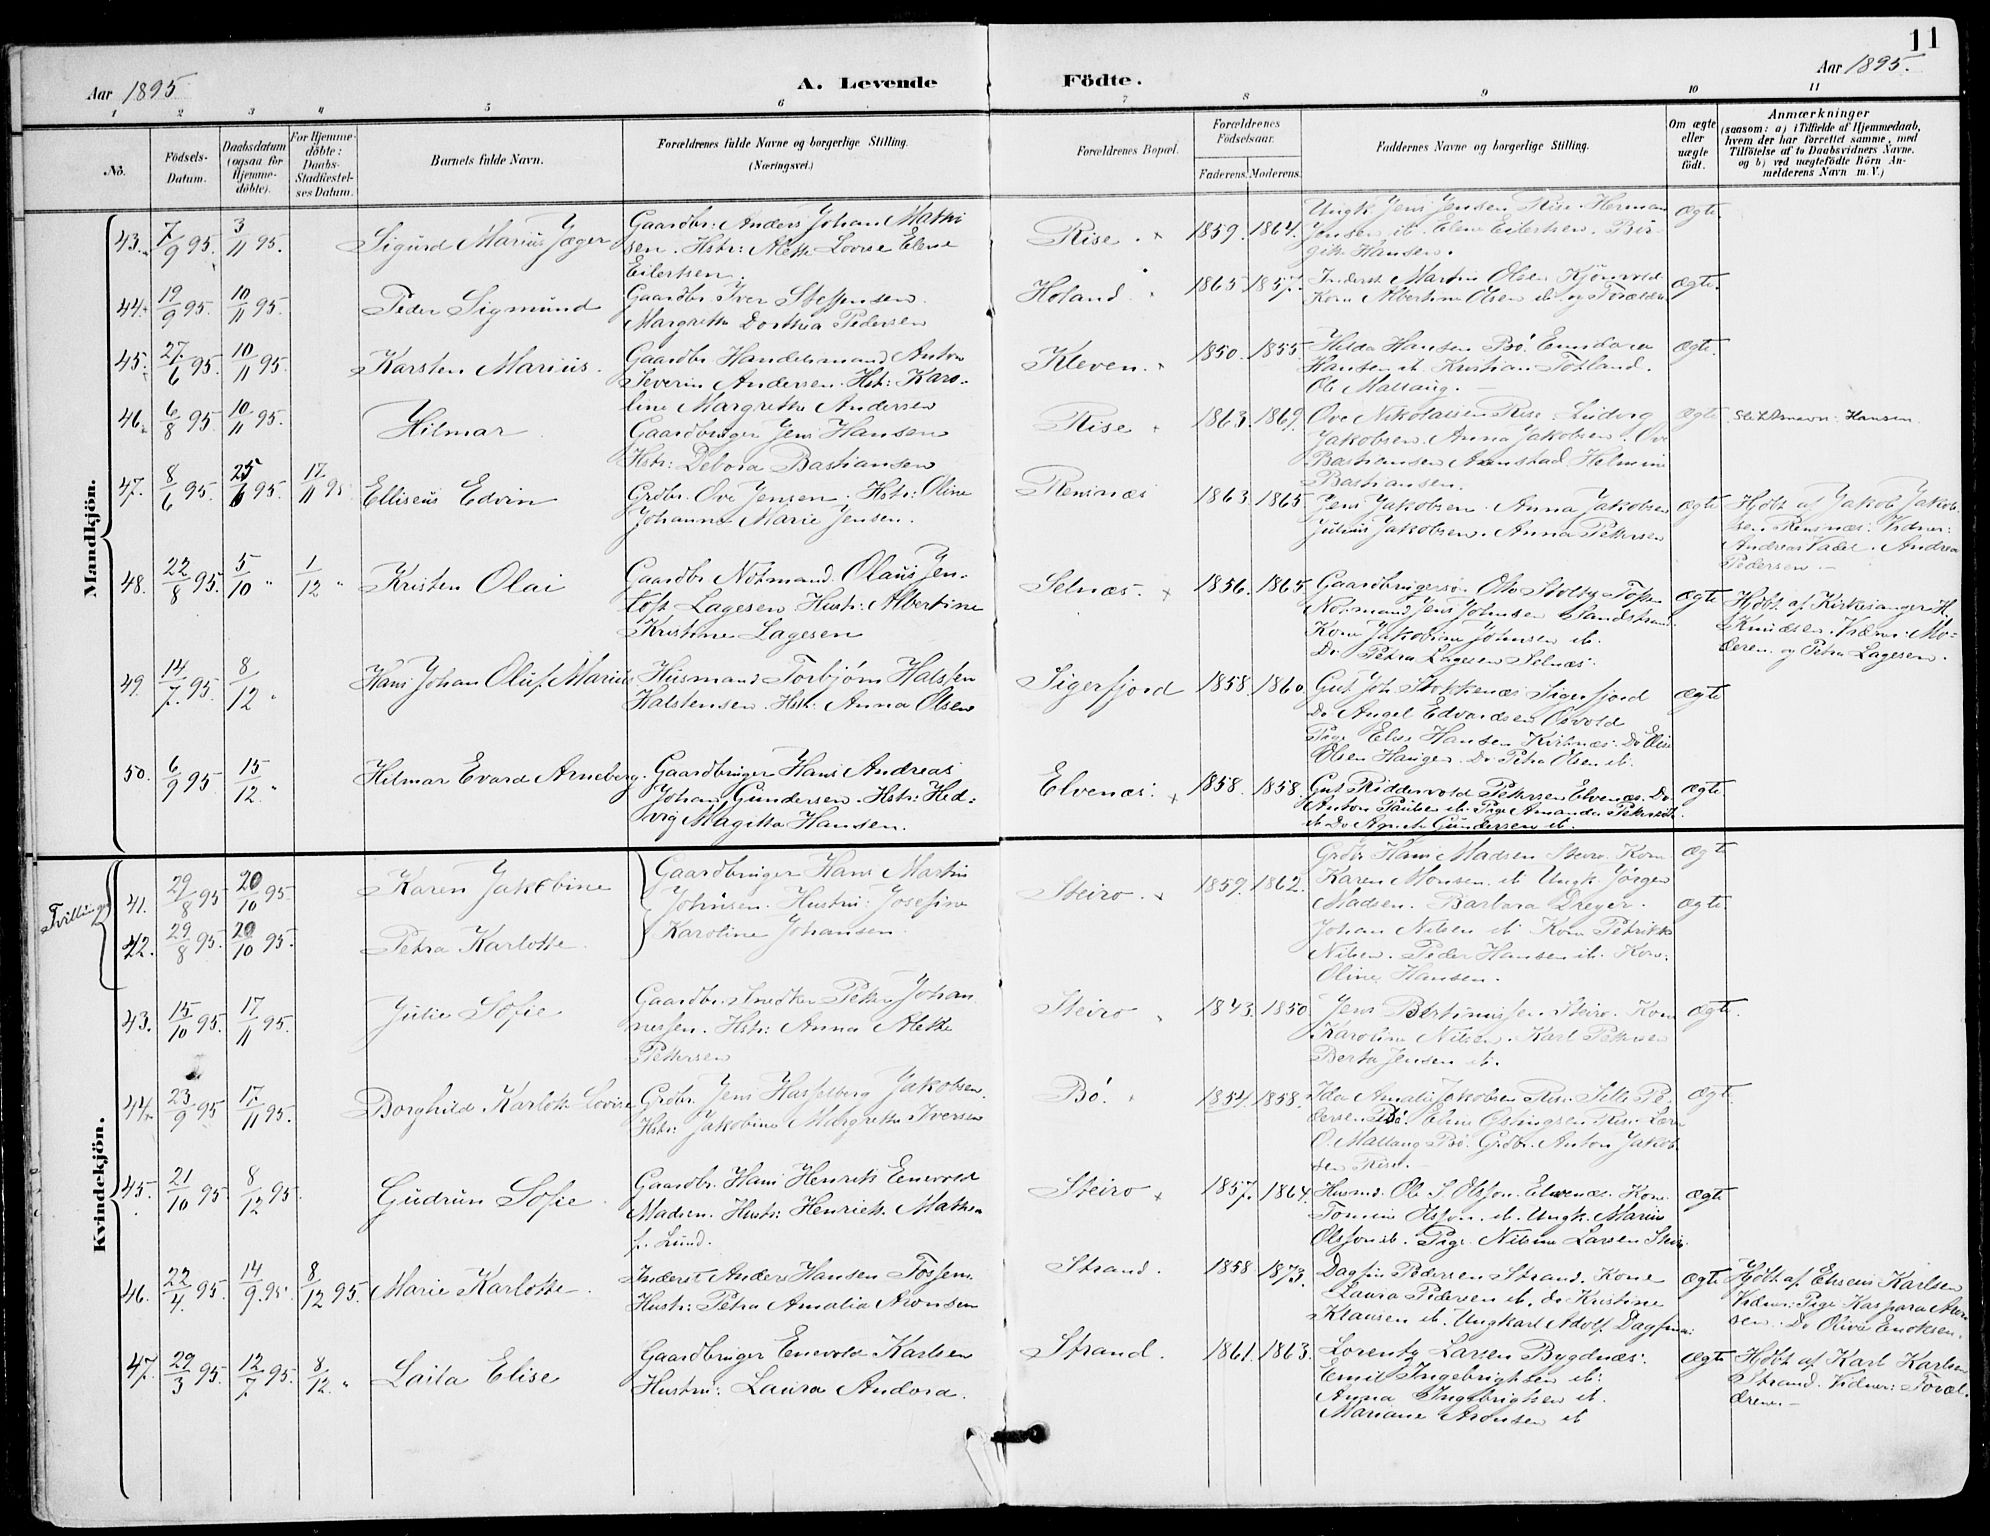 11
Aar 1895
A. Levende
Födte.
Aar 1895.
1 2 3 4 5 6 7 8 9 10 11
No.
Födsels-Datum.
Daabsdatum (ogsaa for Hjemmedöbte).
For Hjemmedöbte: Daabs-Stadfæstelses Datum.
Barnets fulde Navn.
Forældrenes fulde Navne og borgerlige Stilling. (Næringsvei.)
Forældrenes Bopæl.
Forældrenes Födselsaar.
Faderens. Moderens.
Faddernes Navne og borgerlige Stilling.
Om ægte eller uægte födt.
Anmærkninger
(saasom: a) i Tilfælde af Hjemmedaab, hvem der har forrettet samme, med Tilföielse af to Daabsvidners Navne, og b) ved uægtefödte Börn Anmelderens Navn m. V.)
Mandkjön.
43. 7/9 95. 3/11 95. Sigurd Marius Jæger Gaardbr: Anders Johan Mathi Rise. 1859. 1864. Ungk. Jens Jensen Rise. Herman ægte.
sen. Hstr: Alette Lovise Elene Jensen ib. Elene Eilertsen. Bir-
Eilertsen. gitte Hansen.
44. 19/9 95. 10/11 95. Peder Sigmund Gaardbr Iver Steffensen Holand. 1865. 1857. Inderst Martin Olsen ægte.
Margrethe Dorthea Pedersen Kone Albertine Olsen ib og Forældre
45. 27/6 95. 10/11 95. Karsten Marius. Gaardbr Handelsmand Anton Kleven. 1850. 1855. Hilda Hansen Bö. ægte.
Severin Andersen. Hst: Karo- Hansen ib. Kristian Totland.
line Margrethe Andersen Ole Mallaug.
46. 6/8 95. 10/11 95. Hilmar Gaardbruger Jens Hansen Rise 1863. 1869. Ove Nikolaisen Rise. Ludvig ægte Slektsnavn: Hansen.
Hstr: Debora Bastiansen Jakobsen. Anna Jakobsen. Ove
Bastiansen Aanstad. Helmine
Bastiansen.
47. 8/6 95. 25/6 95. 17/11 95 Elliseus Edvin Grdbr. Ove Jensen. Hstr: Oline Rensnæs 1863. 1865. Jens Jakobsen. Anna Jakobsen ægte Hjdbt af Jakob Jakob-
Johanna Marie Jensen. Julius Jakobsen. Anna Pettersen sen Rensnæs. Vidner:
Andreas Vadel. Andrea
Pedersen.
48. 22/8 95. 5/10 " 1/12 " Kristen Olai Gaardbr Notmand Olaus Jen- Selnæs. 1856. 1865. Gaardbrugersö. Otto Stoltz ægte Hjdbt af Kirkesanger H
toft Lagesen Hustr: Albertine Notmand Jens Johnsen Sandstrand Knudsen. Vidner: Mo-
Kristine Lagesen Kone Jakobine Johnsen ib. deren og Petra Lagesen.
Do Petra Lagesen Selnæs.
49. 14/7 95. 8/12 " Hans Johan Oluf Marius Husmand Torbjörn Halssen Sigerfjord 1858. 1860. Gut Joh. Stokkenæs Sigerfjord ægte
Halstensen. Hstr: Anna Olsen Do Angel Edvardsen Osvold
Pige Else Hansen Kvitnæs. Do Elise
Olsen Haugen Do Petra Olsen ib.
50. 6/9 95 15/12 " Hilmar Evard Arneberg. Gaardbruger Hans Andreas Elvenæs. 1858. 1858. Gut Riddervold Pettersen Elvenæs. Do ægte
Johan Gundersen. Hstr: Hed- Anton Paulsen ib. Pige Amanda Pettersen
vig Magitta Hansen. ib Do Agnete Gundersen ib.
Kvindekjön.
Tvillinger
41. 29/8 95 20/10 95. Karen Jakobine Gaardbruger Hans Martin Steiro. 1859. 1862. Grdbr Hans Madsen Steiro. Kone ægte
Johnsen. Hustru: Josefine Karen Monsen ib Ungk. Jörgen
Karoline Johansen. Madsen. Barbara Dreyer. ægte.
42. 29/8 95. 20/10 95. Petra Karlotte Johan Nilsen ib Kone Petrikke
Nilsen. Peder Hansen ib. Kone:
Oline Hansen.
43. 15/10 95. 17/11 95. Julie Sofie Gaardbr. Snedker Peter Johan Steiro 1843. 1850. Jens Bertinussen Steiro. Kone ægte.
nessen. Hstr: Anna Alette Karoline Nilsen. Karl Pettersen
Pettersen Berta Jensen ib.
44. 23/9 95 17/11 95. Borghild Karlotte Lovise Grdbr. Jens Hasselberg Jakobsen. Bö. 1854. 1858. Ida Amalie Jakobsen Rise. Sille Pe- ægte.
Hstr: Jakobine Margrethe Iversen dersen Bö. Eline Rise.
O. Mallaug Bö. Grdbr. Anton Jakob
sen Rise.
45. 21/10 95. 8/12 95. Gudrun Sofie Gaardbr. Hans Henrik Enevold Steiro 1857. 1864. Husmd. Ole S. Olsson. Elvenæs. Kone ægte
Madsen. Hustr: Henriette Mathea Tomine Olsson. ib. Ungk. Marius
f. Lund. Olsson ib. Pige. Nilsine Larsen Steiro.
46. 22/4 95. 14/9 95 8/12 95. Marie Karlotte Inderst Anders Hansen Fossem. Strand. 1858 1873. Dagfin Pedersen Strand. Kone ægte Hjdbt. af Eliseus Karlsen
Hustr: Petra Amalia Aronsen Laura Pedersen ib. do Kristine Vidner: Pige Kaspara Aron
Klausen ib. Ungkarl Adolf Dagfinsen sen. Do Olivia Enoksen.
47. 29/3 95. 12/7 95. 8/12 " Laila Elise Gaardbruger Enevold Karlsen Strand. 1861. 1863. Lorentz Larsen Bygdnæs. ægte Hjdbt af Karl Karlsen
Hustru: Laura Andora. Emil Ingebrigtsen ib. Strand. Vidner: Foræl-
Anna Ingebrigtsen ib. drene
Mariane Aronsen ib